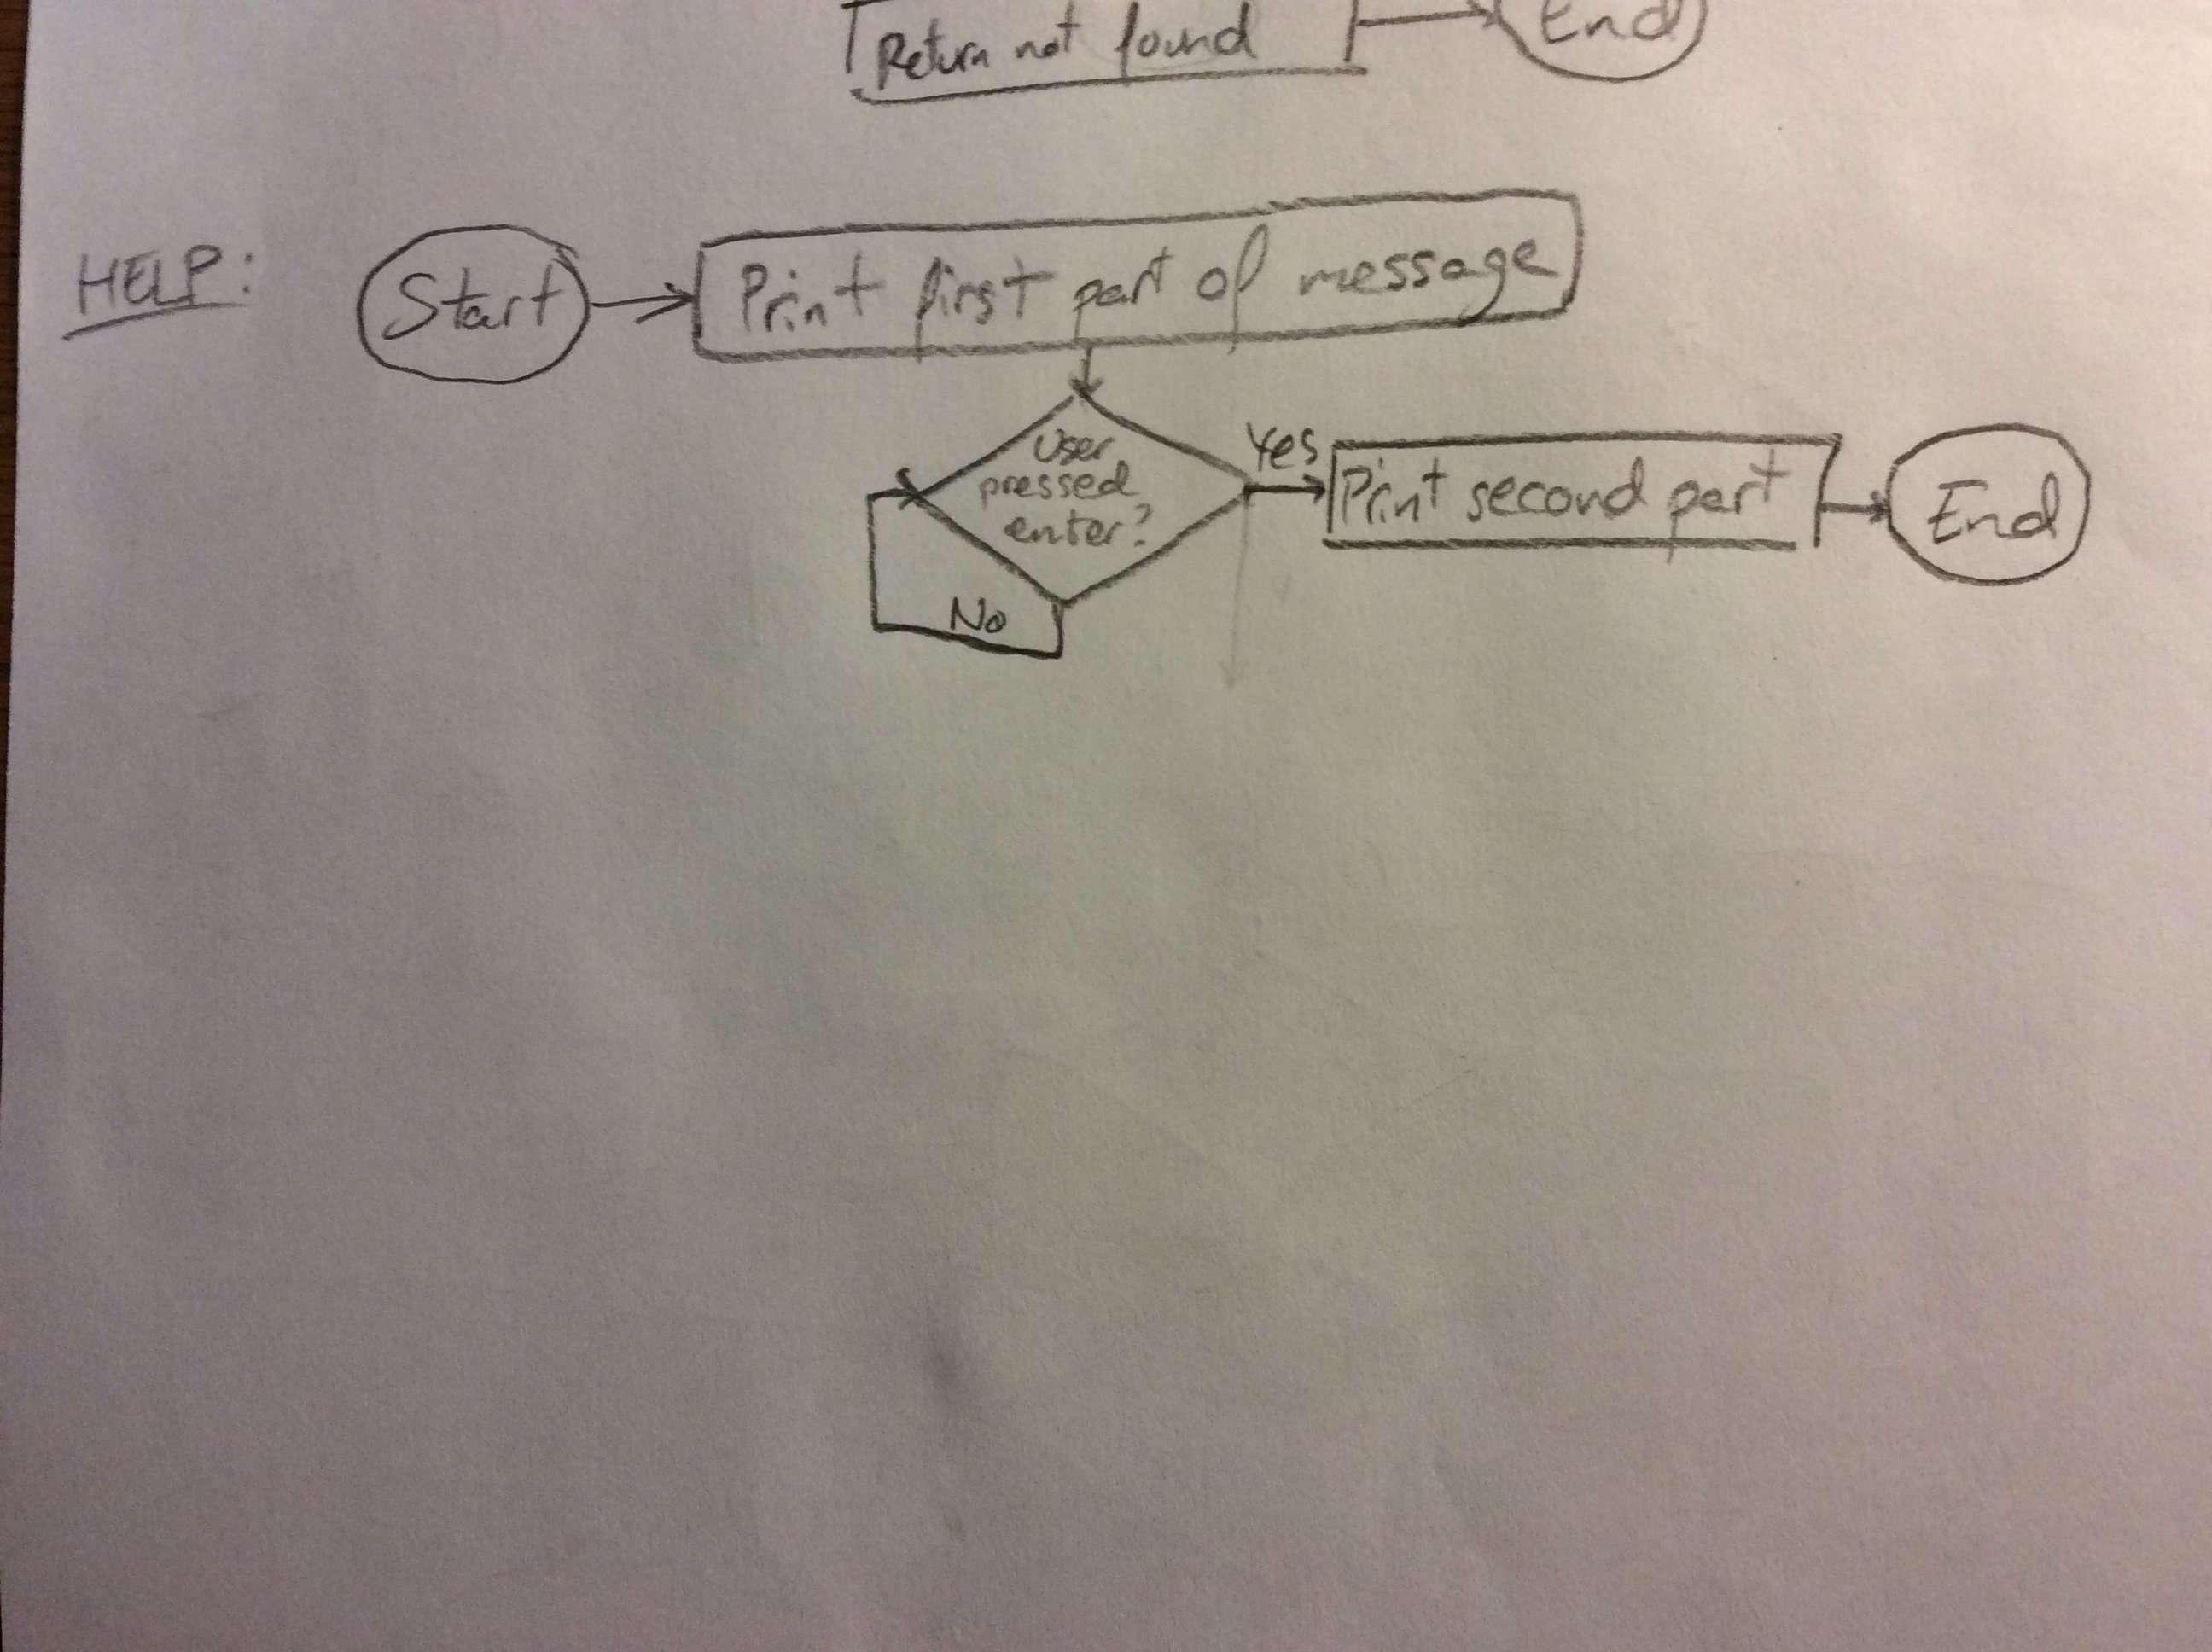 Return not found
End
HELP:
Start
Print first part of message
User
pressed
enter?
Yes
Print second part
End
No